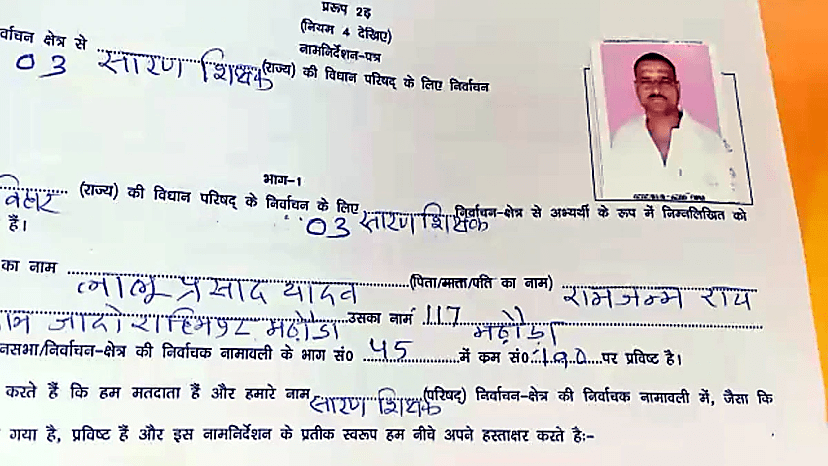 प्ररूप 2ड़
(नियम 4 देखिए)
नामनिर्देशन-पत्र
र्वाचन क्षेत्र से 03 सारण शिक्षक (राज्य) की विधान परिषद् के लिए निर्वाचन
भाग-1
बिहार (राज्य) की विधान परिषद् के निर्वाचन के लिए 03 सारण शिक्षक निर्वाचन-क्षेत्र से अभ्यर्थी के रूप में निम्नलिखित को
हैं।
का नाम लालू प्रसाद यादव (पिता/माता/पति का नाम) रामजन्म राय
जादो रहिमपुर मढ़ौडा उसका नाम 117 मढ़ौड़ा
नसभा/निर्वाचन-क्षेत्र की निर्वाचक नामावली के भाग सं० 45 में कम सं० 190 पर प्रविष्ट है।
करते हैं कि हम मतदाता हैं और हमारे नाम सारण शिक्षक (परिषद्) निर्वाचन-क्षेत्र की निर्वाचक नामावली में, जैसा कि
गया है, प्रविष्ट हैं और इस नामनिर्देशन के प्रतीक स्वरूप हम नीचे अपने हस्ताक्षर करते है:-